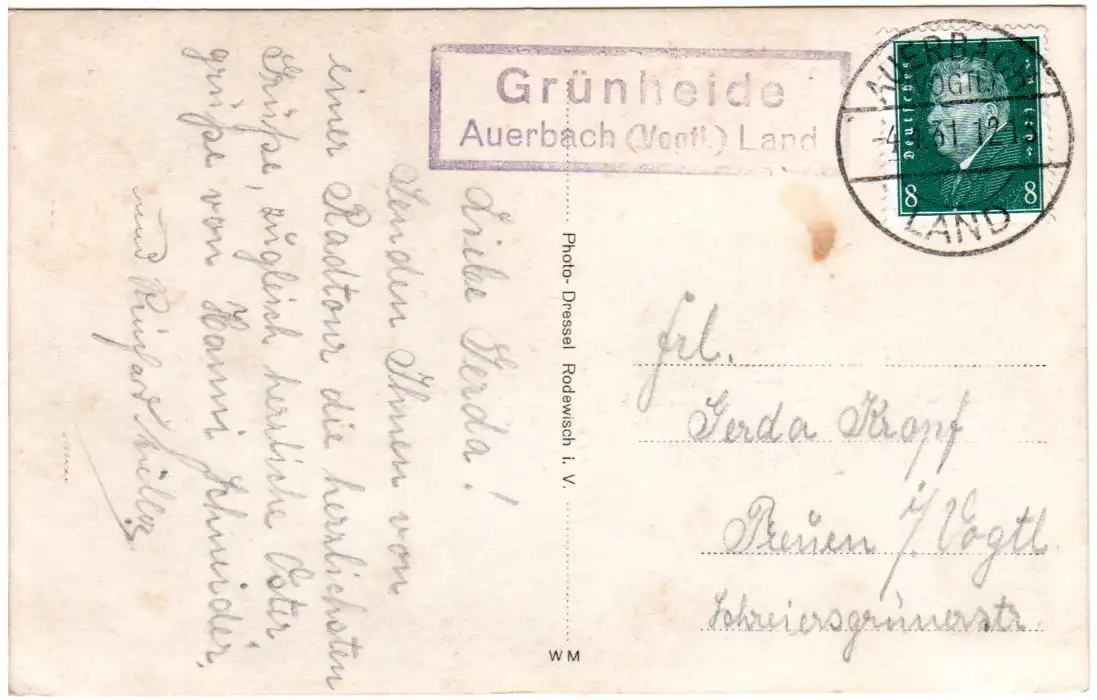 Grünheide
Auerbach (Vogtl.) Land
AUERBACH
(VOGTL.)
31.12
LAND
Deutsches Reich
8 8
Liebe Gerda!
Senden Ihnen von
einer Radtour die herrlichsten
Grüße, zugleich herrliche Oster
grüße von Hanni Schneider,
und
Photo- Dressel Rodewisch i. V.
WM
Frl.
Gerda Kropf
Treuen i/Vogtl.
Schreiersgrünerstr.